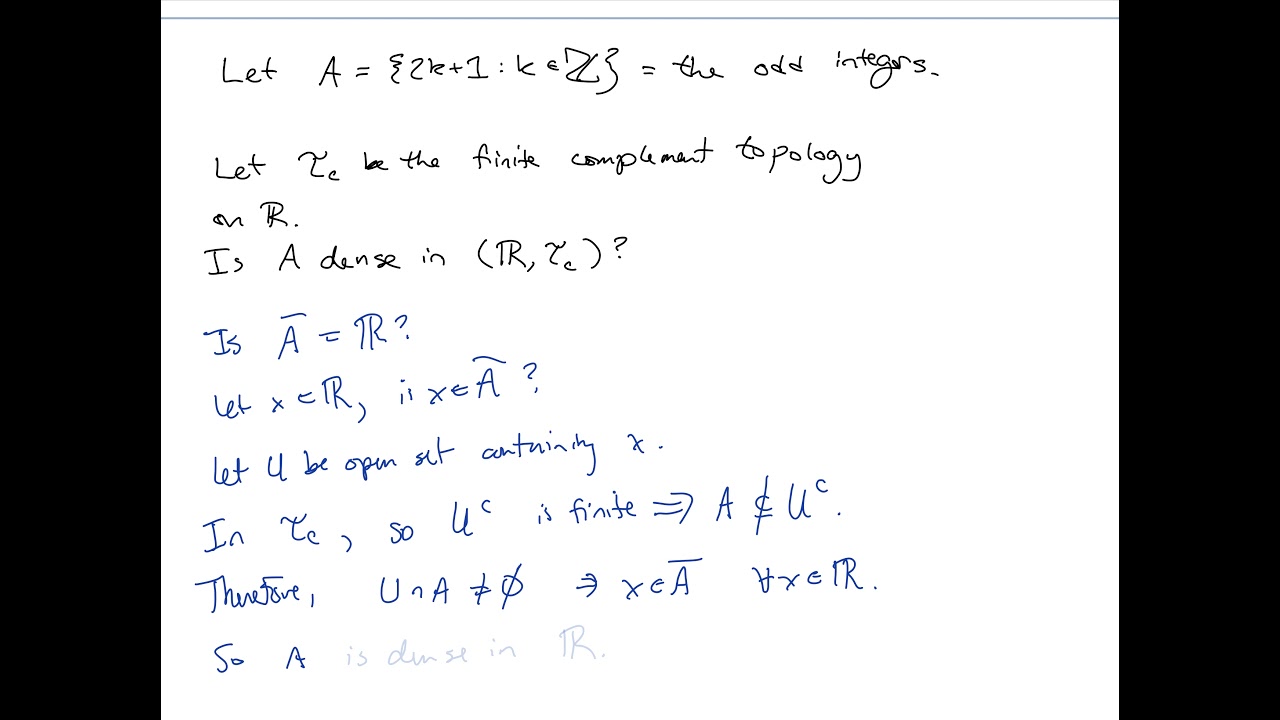 Let A = {2k+1 : k ∈ ℤ} = the odd integers.
Let τ_c be the finite complement topology
on ℝ.
Is A dense in (ℝ, τ_c)?
Is A̅ = ℝ?
Let x ∈ ℝ, is x ∈ A̅ ?
Let U be open set containing x.
In τ_c, so U^c is finite ⟹ A ⊄ U^c.
Therefore, U ∩ A ≠ ∅ ⇒ x ∈ A̅ ∀x ∈ ℝ.
So A is dense in ℝ.